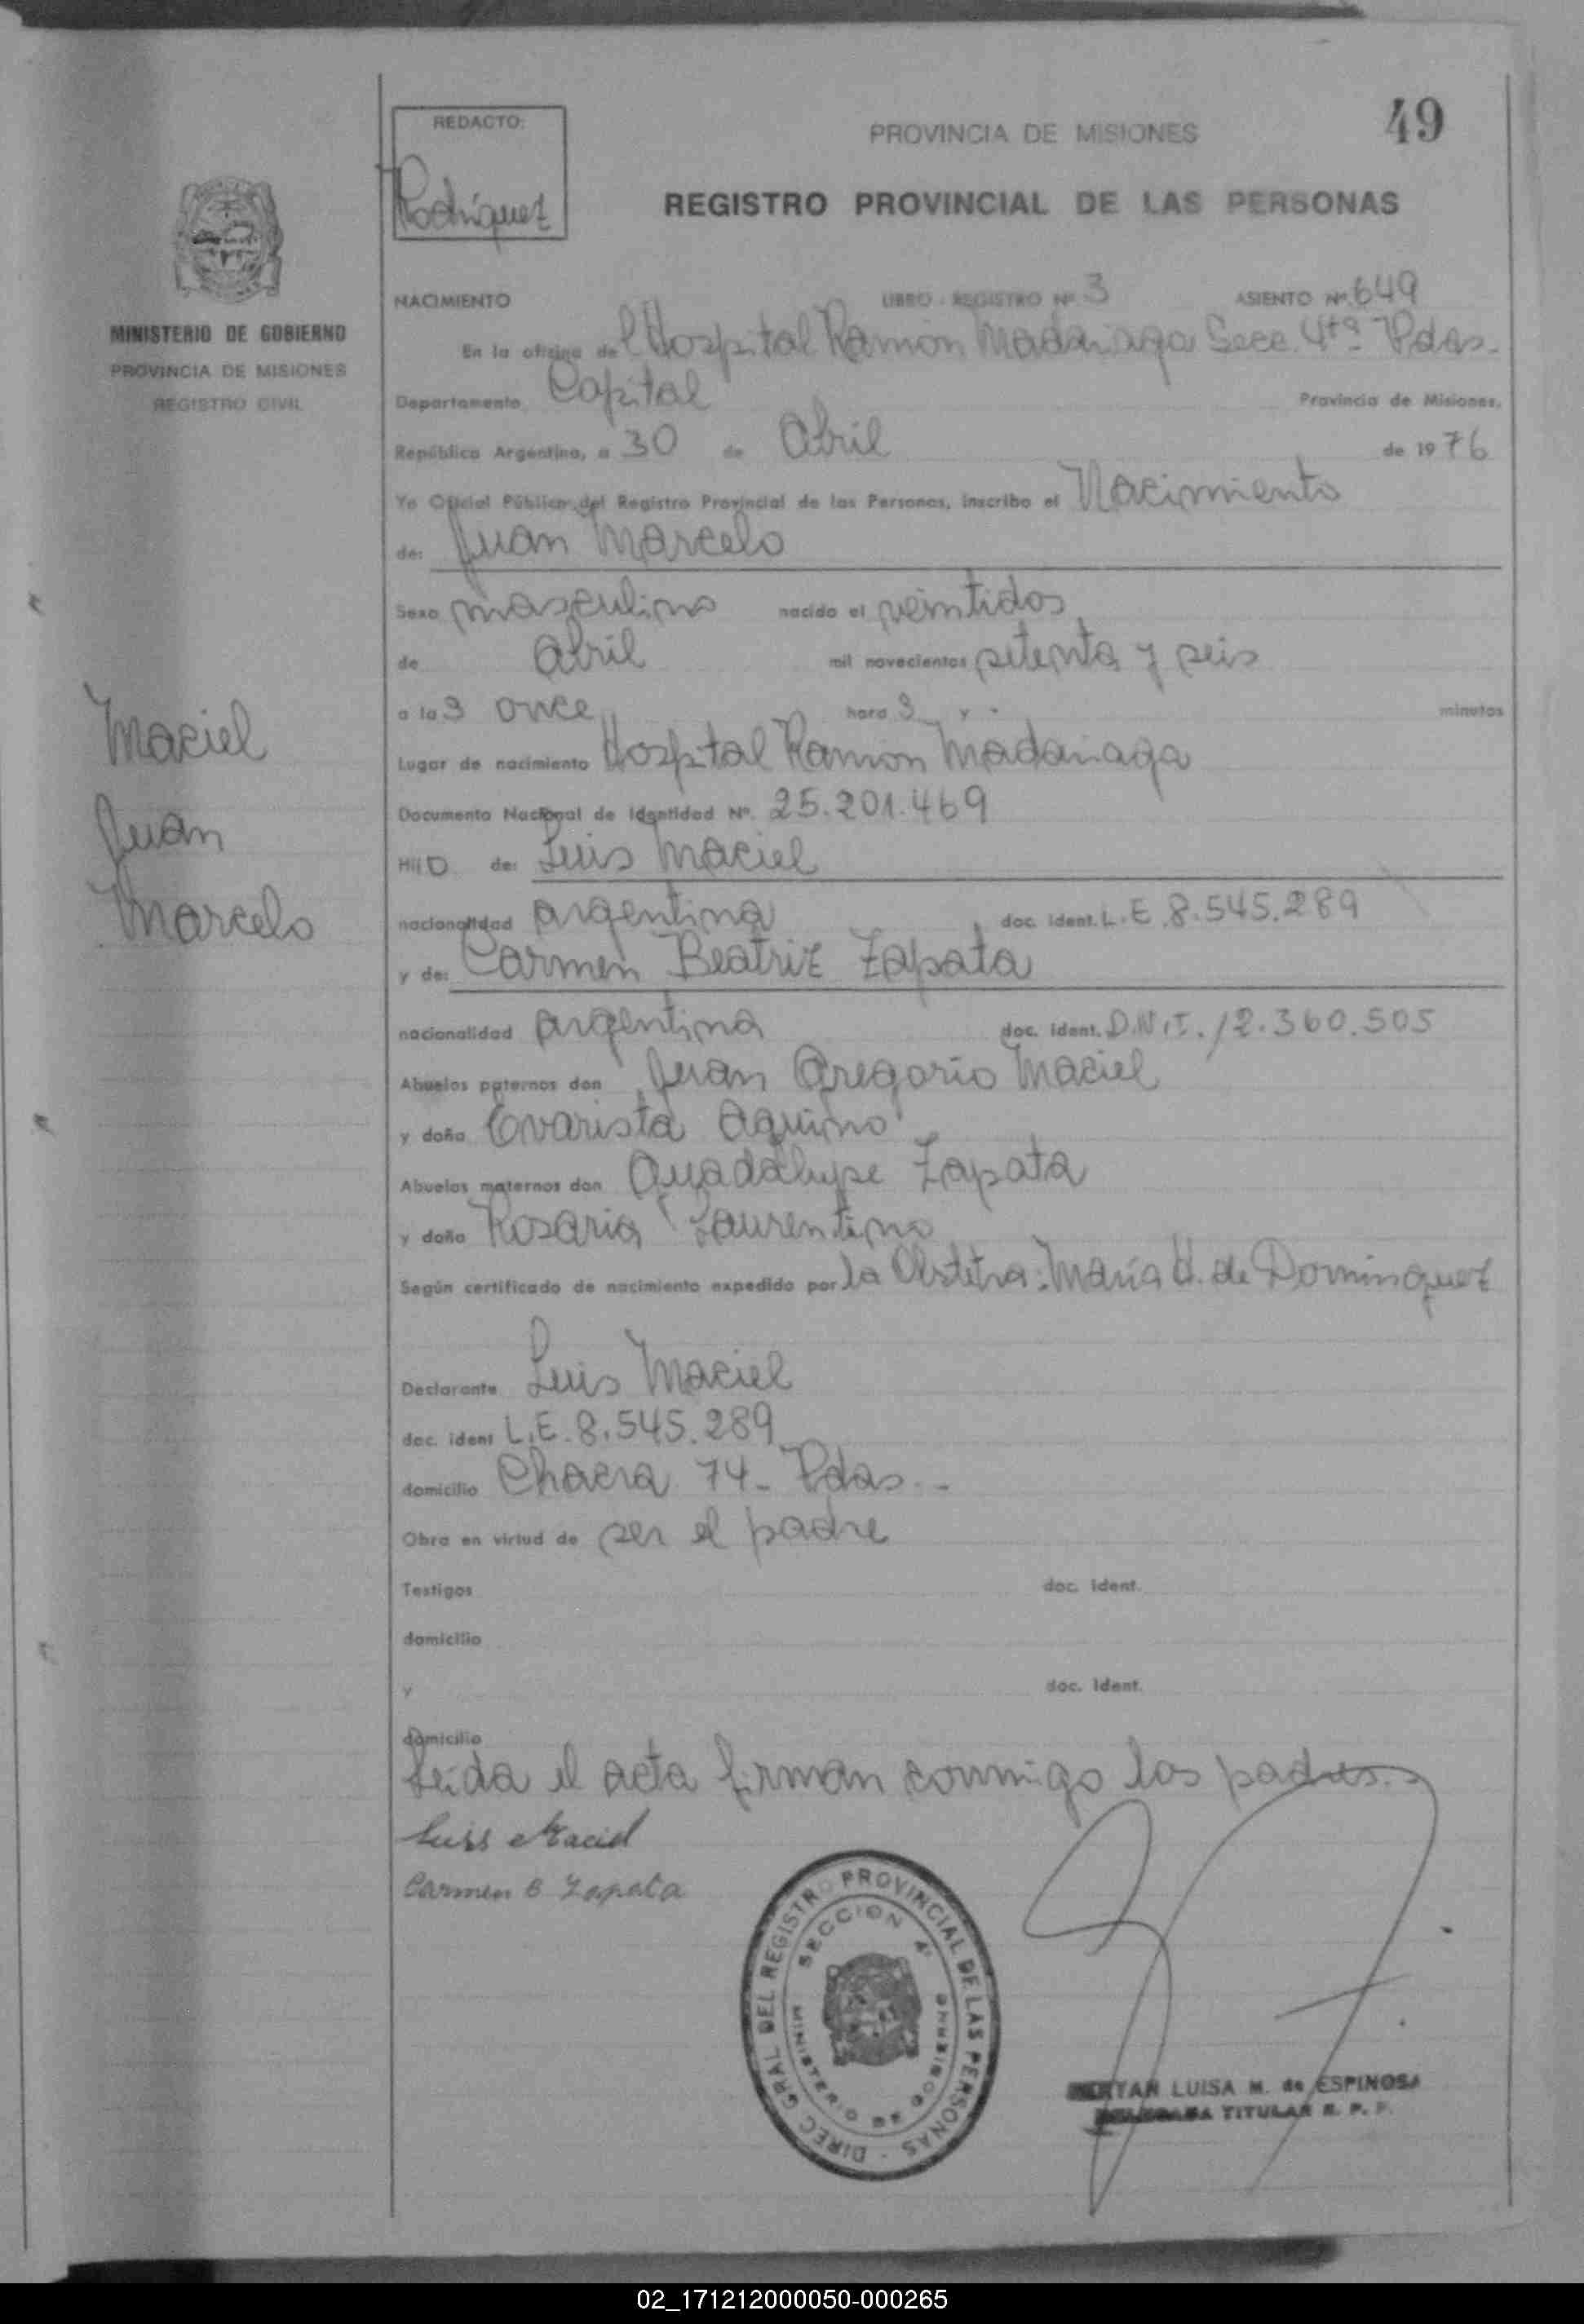 49
REDACTO:
Rodríguez
PROVINCIA DE MISIONES
REGISTRO PROVINCIAL DE LAS PERSONAS
MINISTERIO DE GOBIERNO
PROVINCIA DE MISIONES
REGISTRO CIVIL
NACIMIENTO LIBRO - REGISTRO Nº 3 ASIENTO Nº 649
En la oficina del Hospital Ramón Madariaga Secc. 4ta. Pdas.-
Departamento Capital Provincia de Misiones,
República Argentina, a 30 de Abril de 1976
Yo Oficial Público del Registro Provincial de las Personas, inscribo el Nacimiento
de: Juan Marcelo
Sexo masculino nacido el veintidos
de abril mil novecientos setenta y seis
a las once horas y - minutos
Lugar de nacimiento Hospital Ramon Madariaga
Maciel
Juan
Marcelo
Documento Nacional de Identidad Nº. 25.201.469
Hijo de: Luis Maciel
nacionalidad argentina doc. ident. L.E. 8.545.289
y de: Carmen Beatriz Zapata
nacionalidad argentina doc. ident. D.N.I. 12.360.505
Abuelos paternos don Juan Gregorio Maciel
y doña Evarista Aquino
Abuelos maternos don Guadalupe Zapata
y doña Rosaria Laurentino
Según certificado de nacimiento expedido por la Obstetra: María H. de Dominguez
Declarante Luis Maciel
doc. ident L.E. 8.545.289
domicilio Chacra 74- Pdas.-
Obra en virtud de ser el padre
Testigos doc. ident.
domicilio
y doc. ident.
domicilio
Leida el acta firman conmigo los padres.
Luis Maciel
Carmen B Zapata
DIREC. GRAL DEL REGISTRO PROVINCIAL DE LAS PERSONAS -
SECCION 4ª
MINISTERIO DE GOBIERNO
LUISA M. de ESPINOSA
TITULAR R. P. P.
02_171212000050-000265